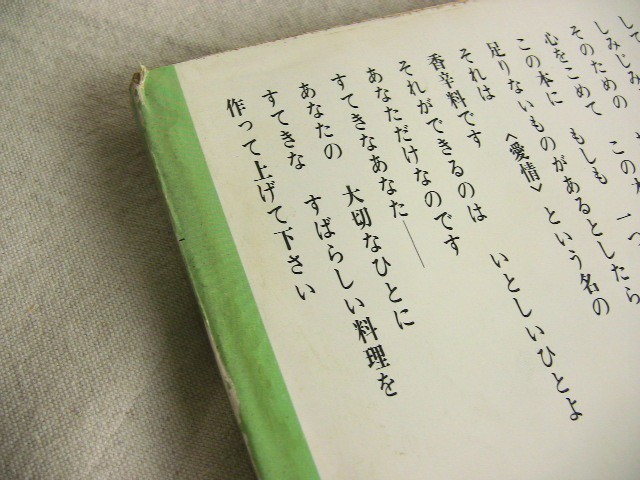 して
しみじみ
そのための この
心をこめて もしも 一つ
この本に
足りないものがあるとしたら
それは 〈愛情〉 という名の
香辛料です
それができるのは いとしいひとよ
あなただけなのです
すてきなあなた――
あなたの 大切なひとに
すてきな すばらしい料理を
作って上げて下さい